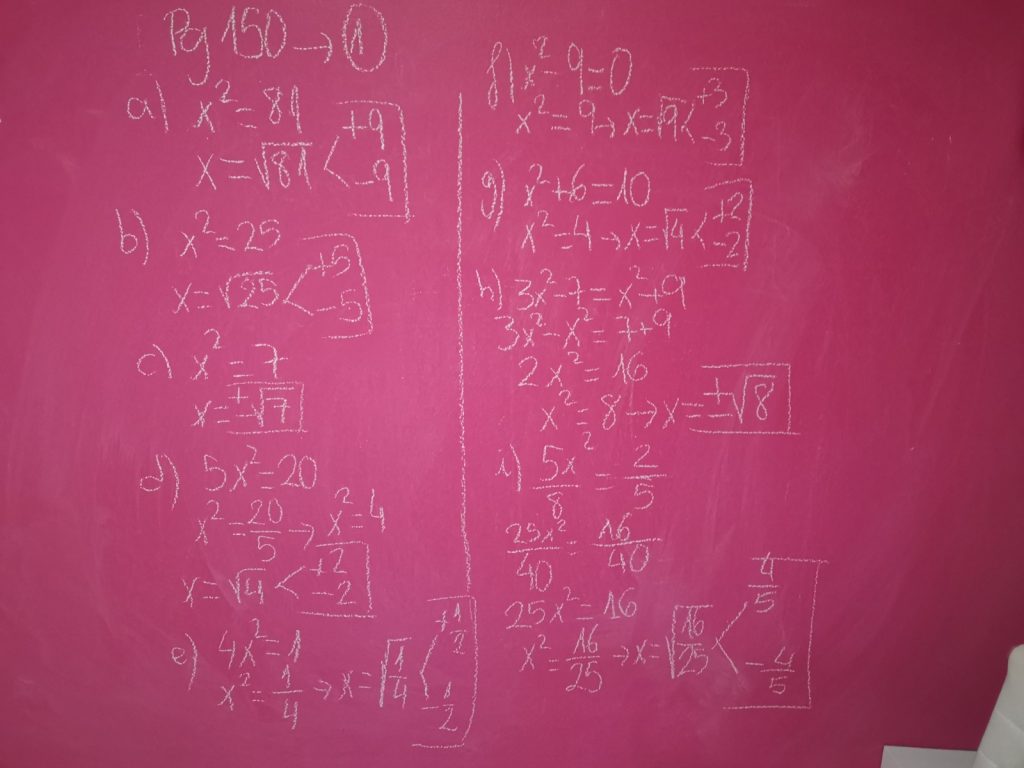 Pg 150 → ①
a) x² = 81
x = √81 < +9 -9
b) x² = 25
x = √25 < +5 -5
c) x² = 7
x = ±√7
d) 5x² = 20
x² = 20/5 → x² = 4
x = √4 < +2 -2
e) 4x² = 1
x² = 1/4 → x = √1/4 < +1/2 -1/2
f) x² - 9 = 0
x² = 9 → x = √9 < +3 -3
g) x² + 6 = 10
x² = 4 → x = √4 < +2 -2
h) 3x² - 7 = x² + 9
3x² - x² = 7 + 9
2x² = 16
x² = 8 → x = ±√8
i) 5x²/8 = 2/5
25x²/40 = 16/40
25x² = 16
x² = 16/25 → x = √16/25 < 4/5 -4/5